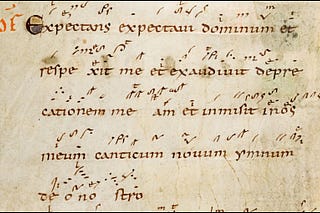 Expectans expectaui dominum et
respe xit me et exaudiuit depre
cationem me am et inmisit in os
meum canticum nouum ymnum
deo no stro